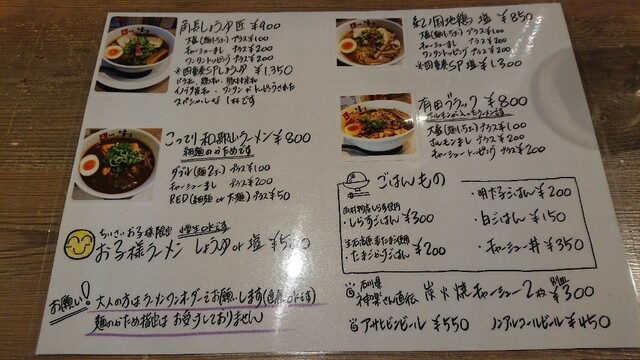 角長しょうゆ匠 ¥900
大盛(麺1.5玉) プラス100
チャーシューまし プラス200
ワンタントッピング プラス200
SPしょうゆ ¥1,350
スペシャルな1杯です
紀ノ国地鶏 塩 ¥850
大盛(麺1.5玉) プラス100
チャーシューまし プラス200
ワンタントッピング プラス200
SP塩 ¥1,300
こってり和歌山ラーメン ¥800
細麺のかためです
ダブル(麺2玉) プラス100
チャーシューまし プラス200
RED(細麺 or 太麺) プラス¥50
有田ブラック ¥800
大盛(麺1.5玉) プラス100
ホルモンまし プラス200
チャーシュートッピング プラス200
ごはんもの
しらす使用
・しらすごはん ¥300
使用
・たまごかけごはん ¥200
・明太ごはん ¥200
・白ごはん ¥150
・チャーシュー丼 ¥350
ちいさいお子様限定
お子様ラーメン しょうゆ or 塩 ¥500
お願い!
大人の方はラーメンワンオーダーでお願いします
麺のかため指定はお受けしておりません
石川県
神楽さん直伝 炭火焼チャーシュー2枚 ¥300
アサヒビンビール ¥550
ノンアルコールビール ¥450